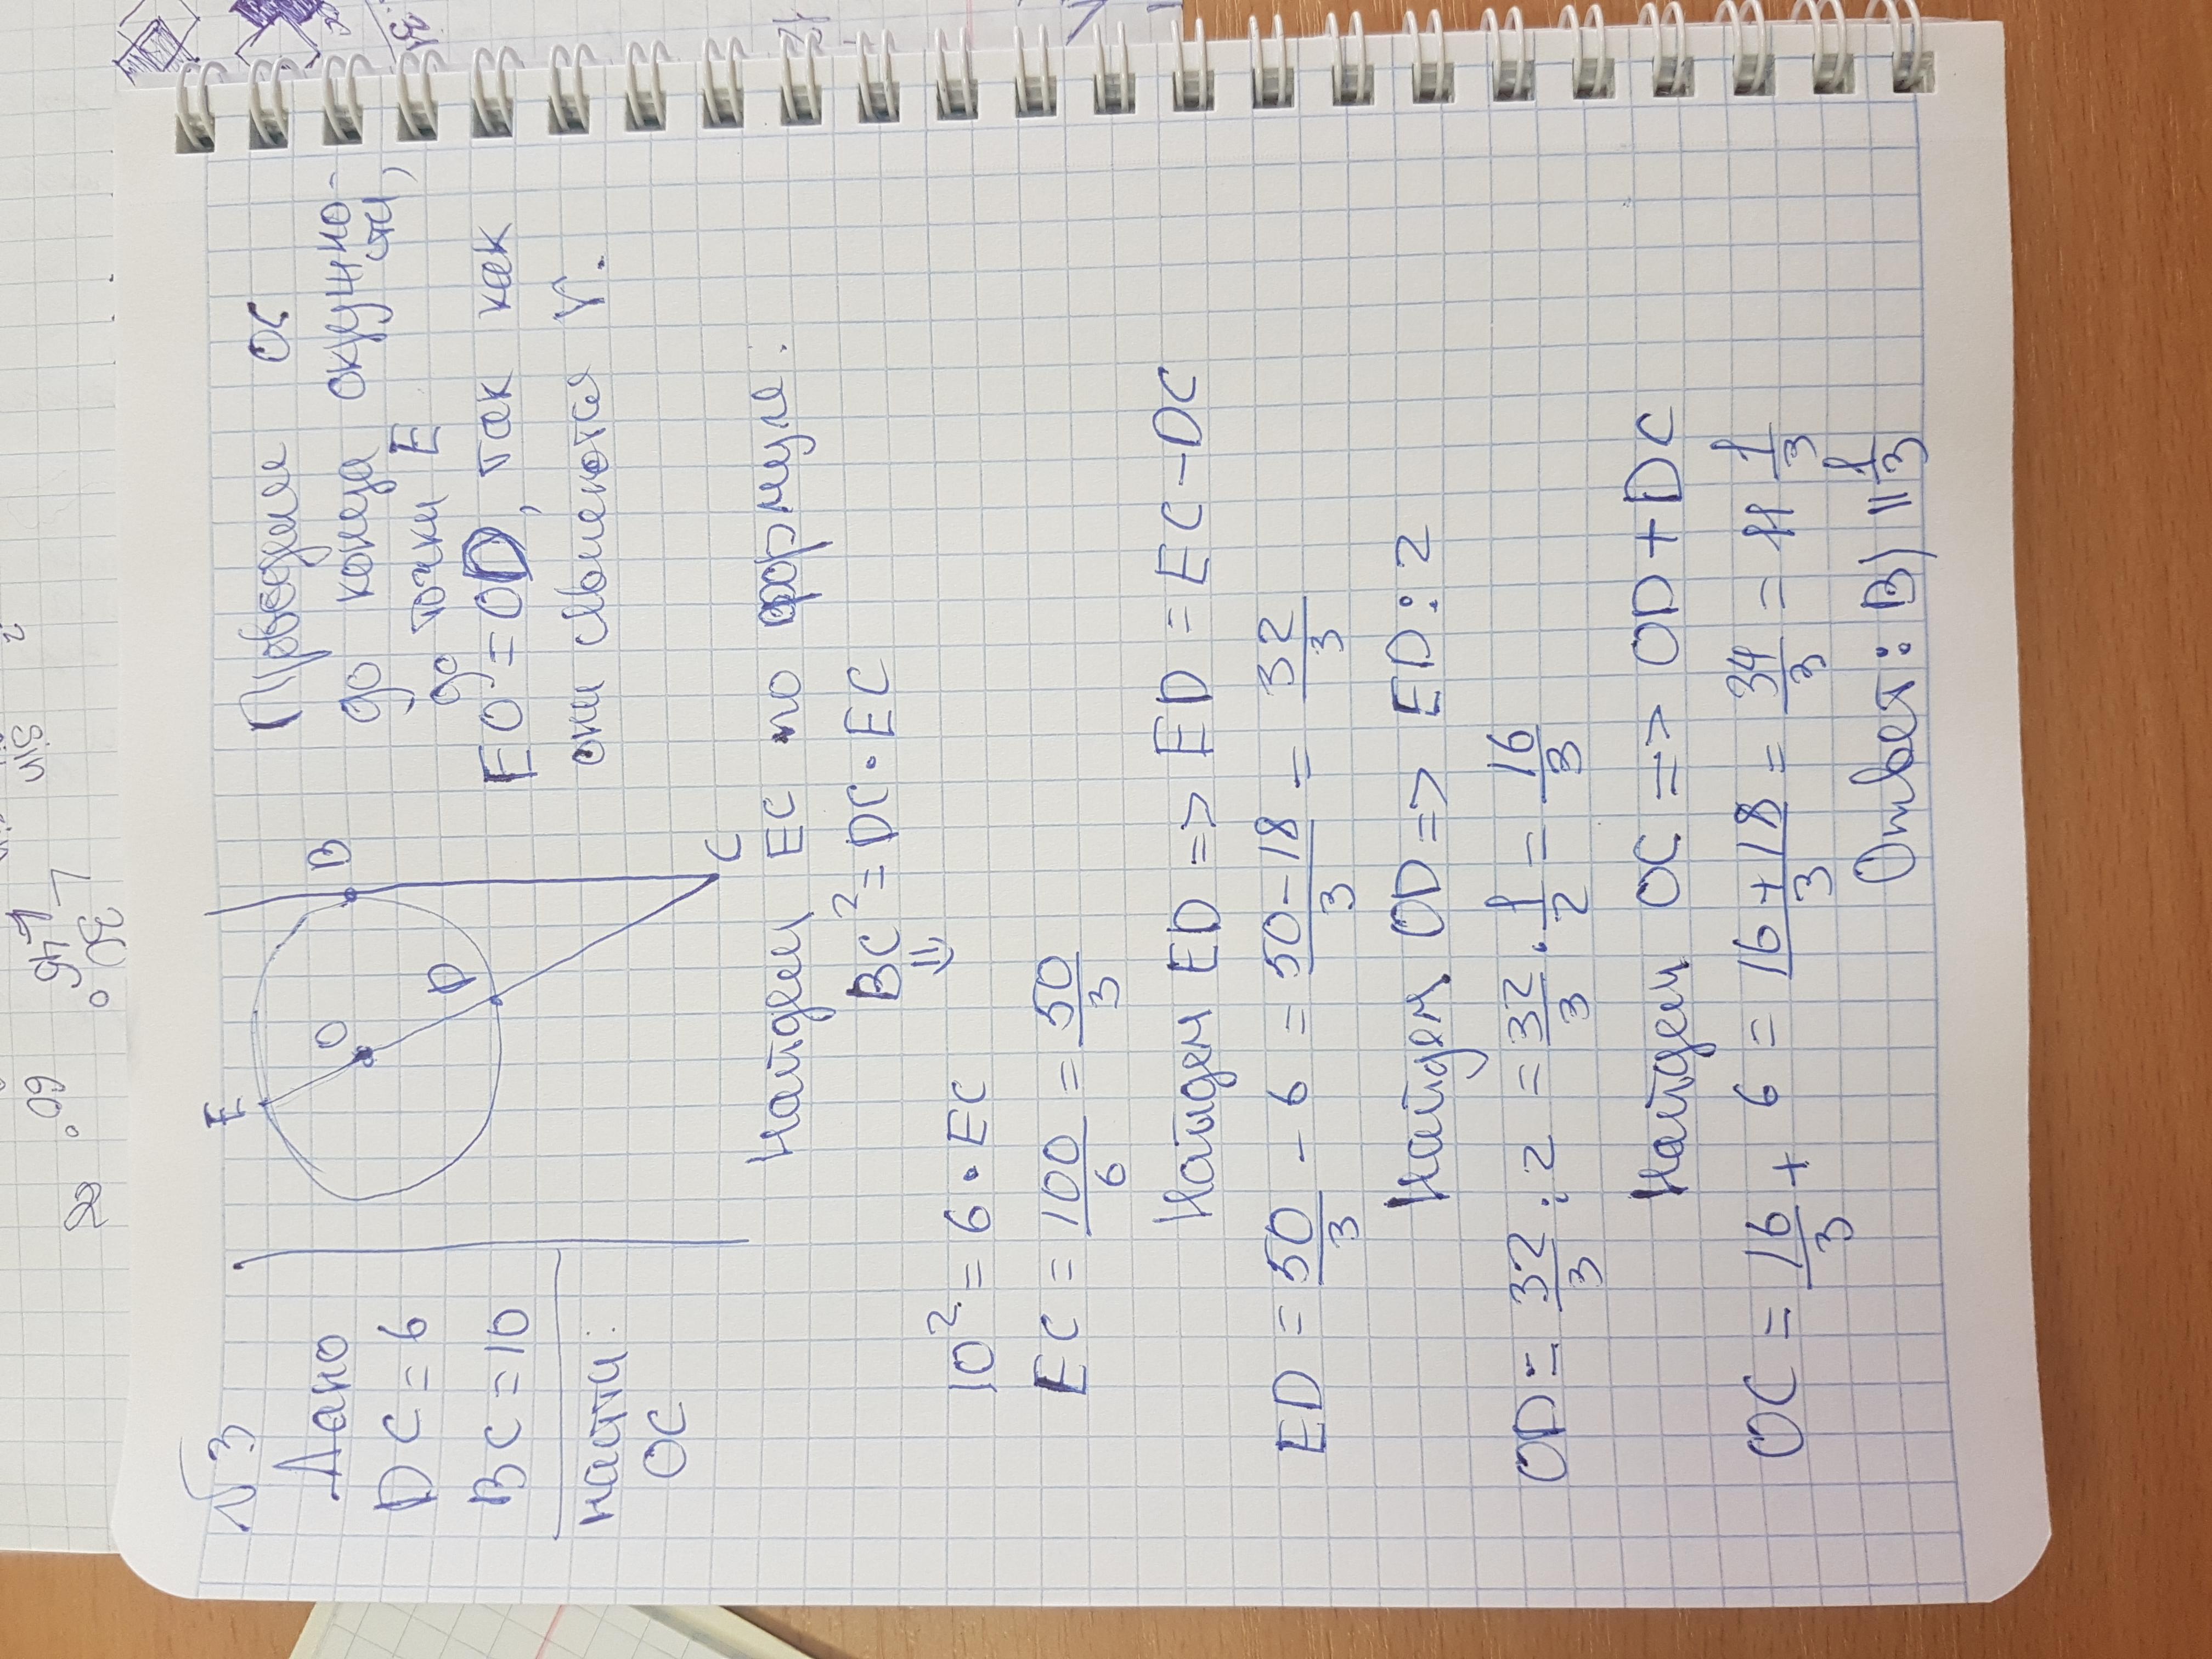 №3
Дано
DC = 6
BC = 10
найти:
OC
E
O
B
D
C
Проведем ос
до конца окружно-
сти,
до точки E
EO = OD, так как
они являются r.
Найдем EC по формуле.
BC² = DC · EC
10² = 6 · EC
EC = 100/6 = 50/3
Найдем ED => ED = EC - DC
ED = 50/3 - 6 = (50-18)/3 = 32/3
Найдем OD => ED : 2
OD = 32/3 : 2 = 32/3 · 1/2 = 16/3
Найдем OC => OD + DC
OC = 16/3 + 6 = (16+18)/3 = 34/3 = 11 1/3
Ответ: В) 11 1/3
sin
60°
30°